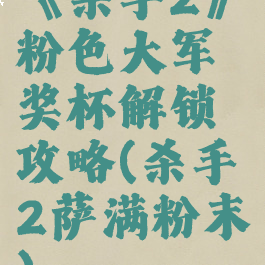 《杀手2》
粉色大军
奖杯解锁
攻略(杀手
2萨满粉末
)